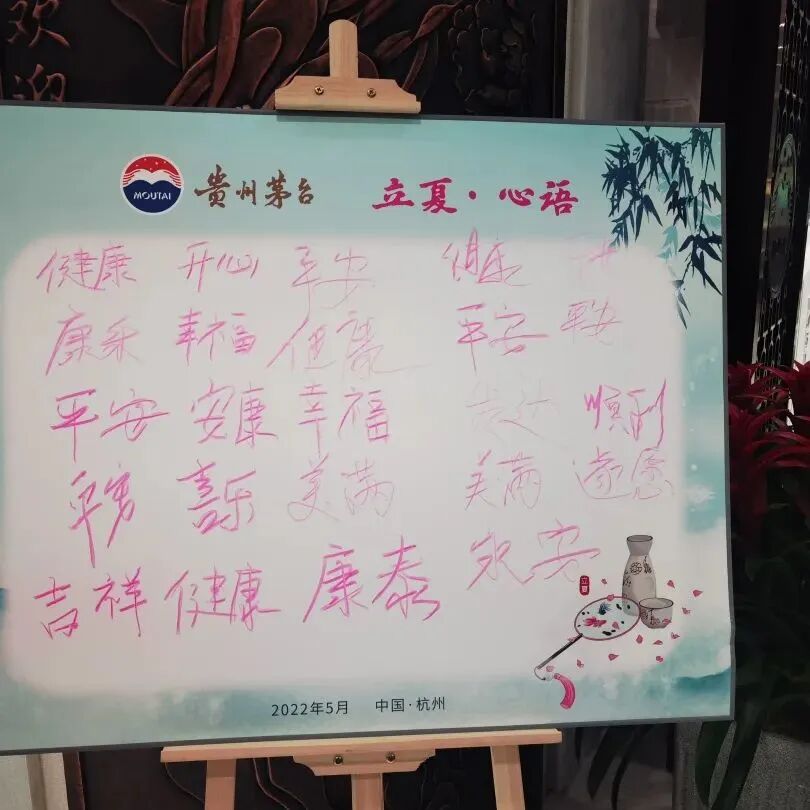 欢迎
MOUTAI 贵州茅台 立夏·心语
健康 开心 平安 健康
康乐 幸福 健康 平安 平安
平安 安康 幸福 发达 顺利
平安 喜乐 美满 美满 遂愿
吉祥 健康 康泰 永安
立夏
2022年5月 中国·杭州